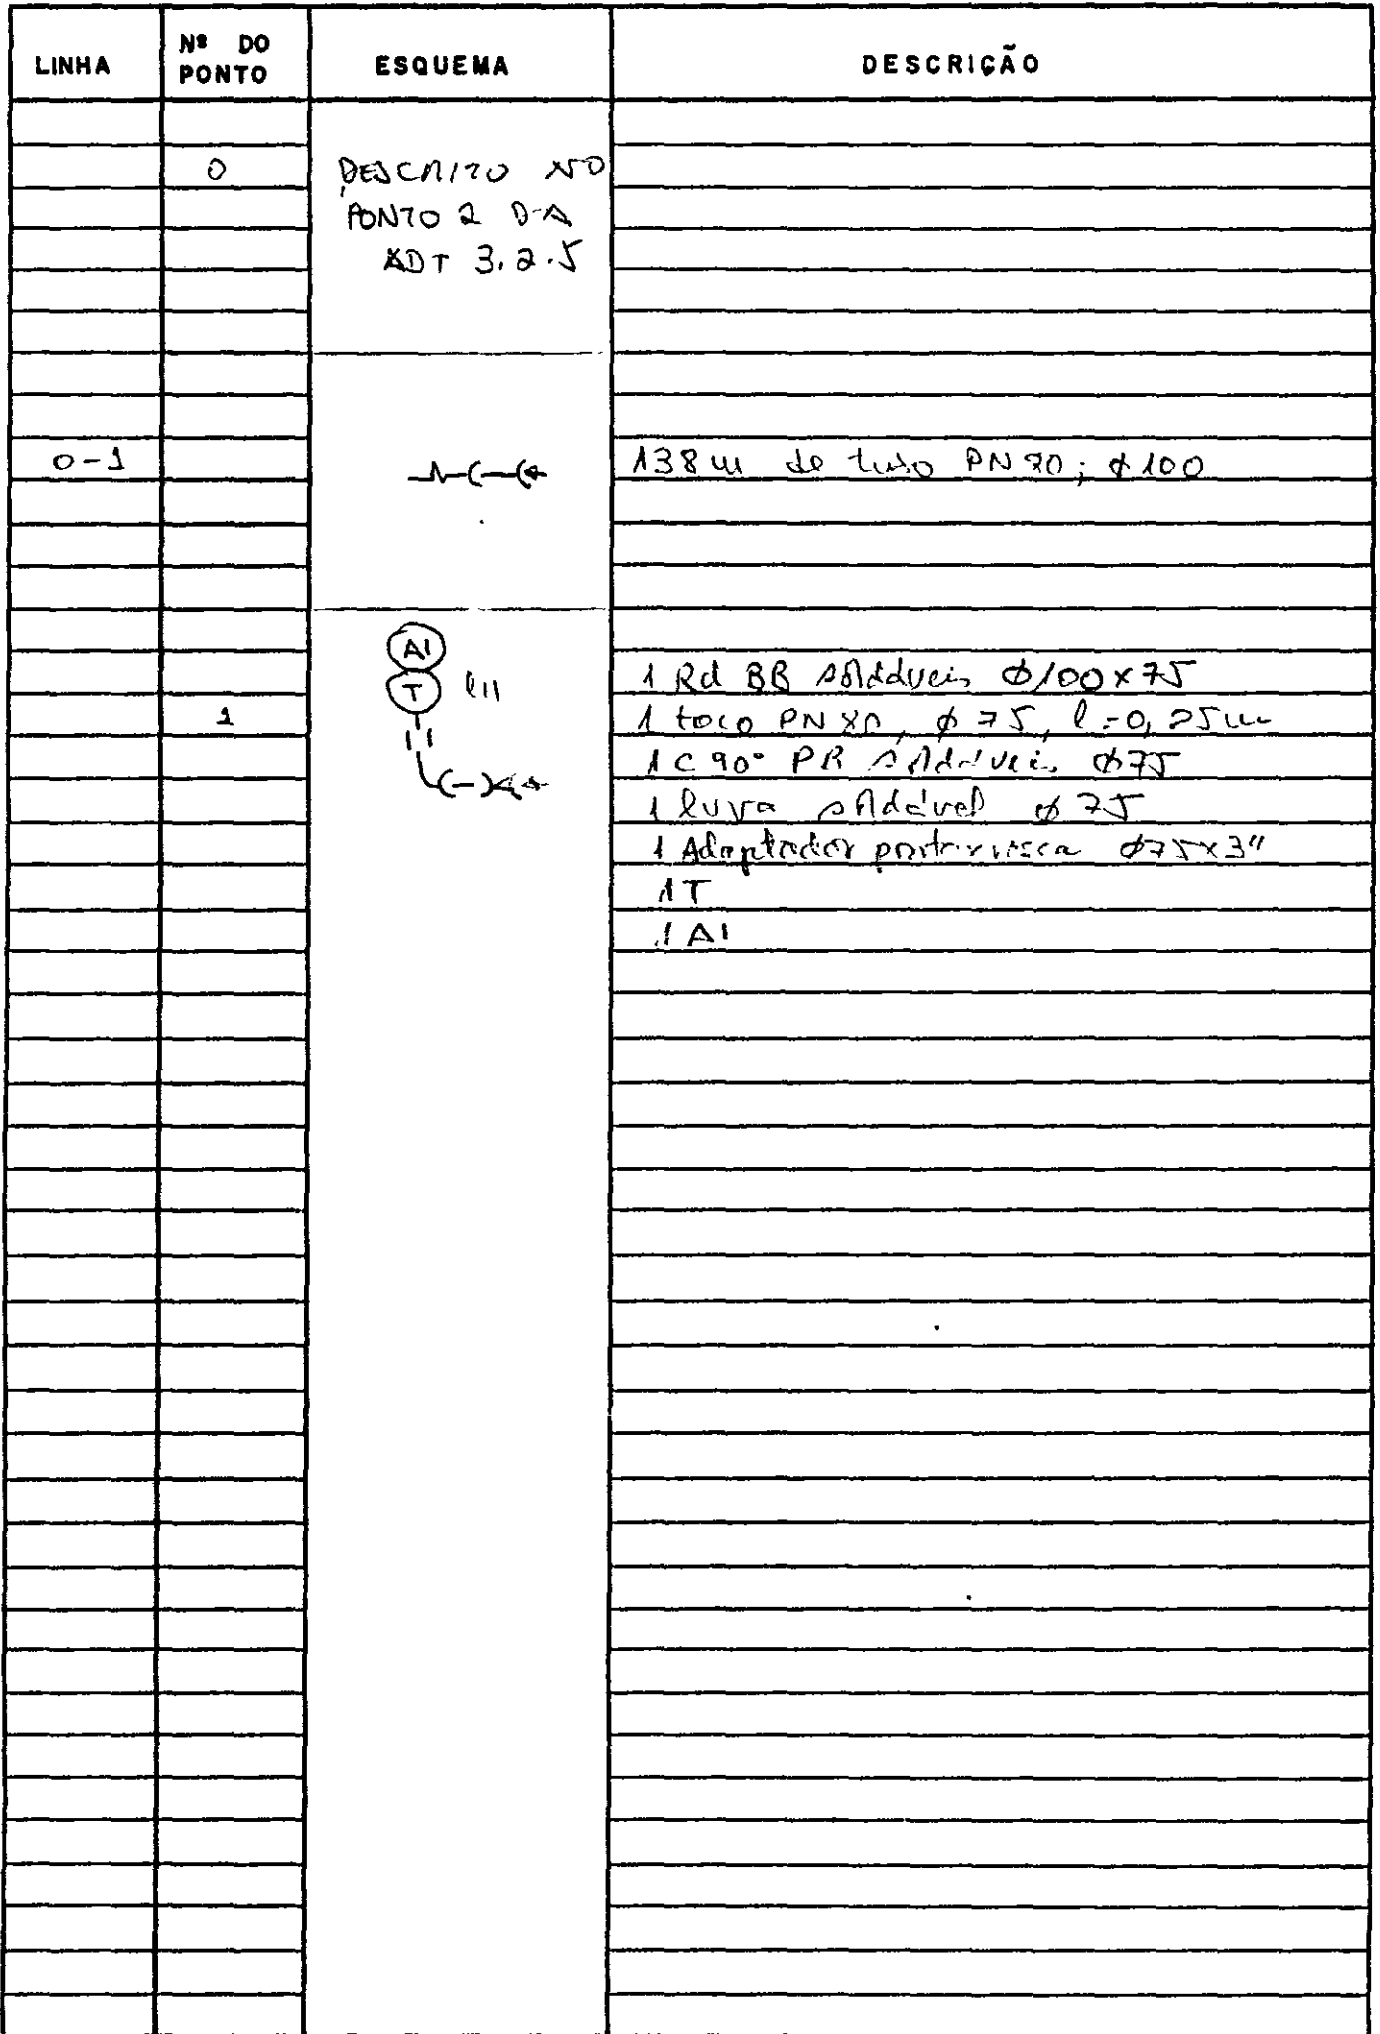 LINHA
Nº DO PONTO
ESQUEMA
DESCRIÇÃO
0
DESCRITO NO
PONTO 2 DA
ADT 3.2.5
0-1
138 m de tubo PN 80; ø 100
AI
T
1
1 Rd BB soldáveis ø 100 x 75
1 toco PN 80, ø 75, l = 0,25 m
1 C 90° PB soldáveis ø 75
1 luva soldável ø 75
1 Adaptador ponta rosca ø 75 x 3"
1 T
1 AI